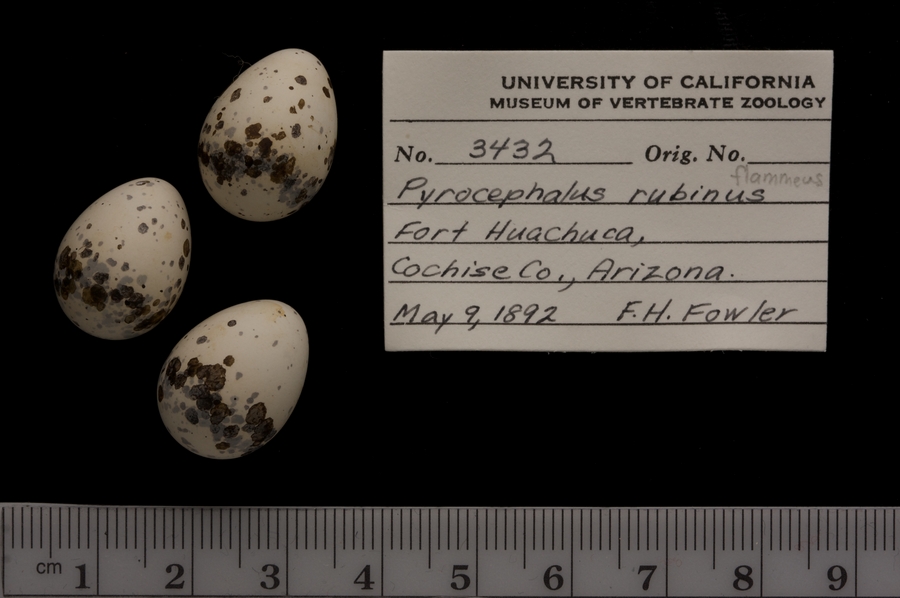 UNIVERSITY OF CALIFORNIA
MUSEUM OF VERTEBRATE ZOOLOGY
No. 3432 Orig. No.
flammeus
Pyrocephalus rubinus
Fort Huachuca,
Cochise Co., Arizona.
May 9, 1892 F.H. Fowler
cm 1 2 3 4 5 6 7 8 9